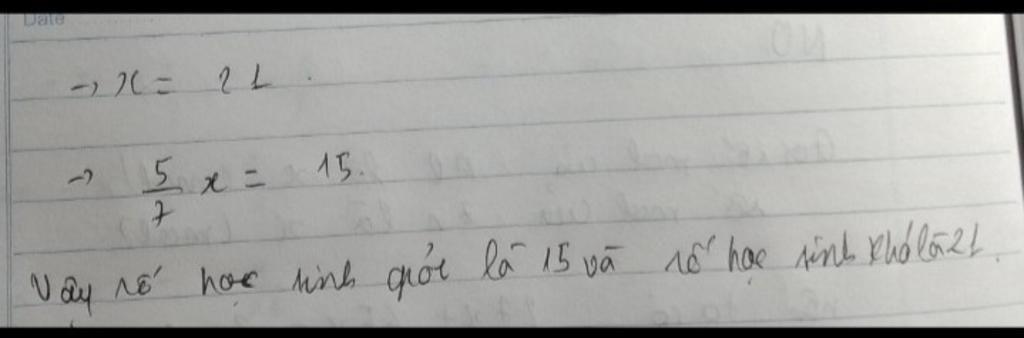 Date
→ x = 21.
→ 5/7 x = 15.
Vậy số học sinh giỏi là 15 và số học sinh khá là 21.